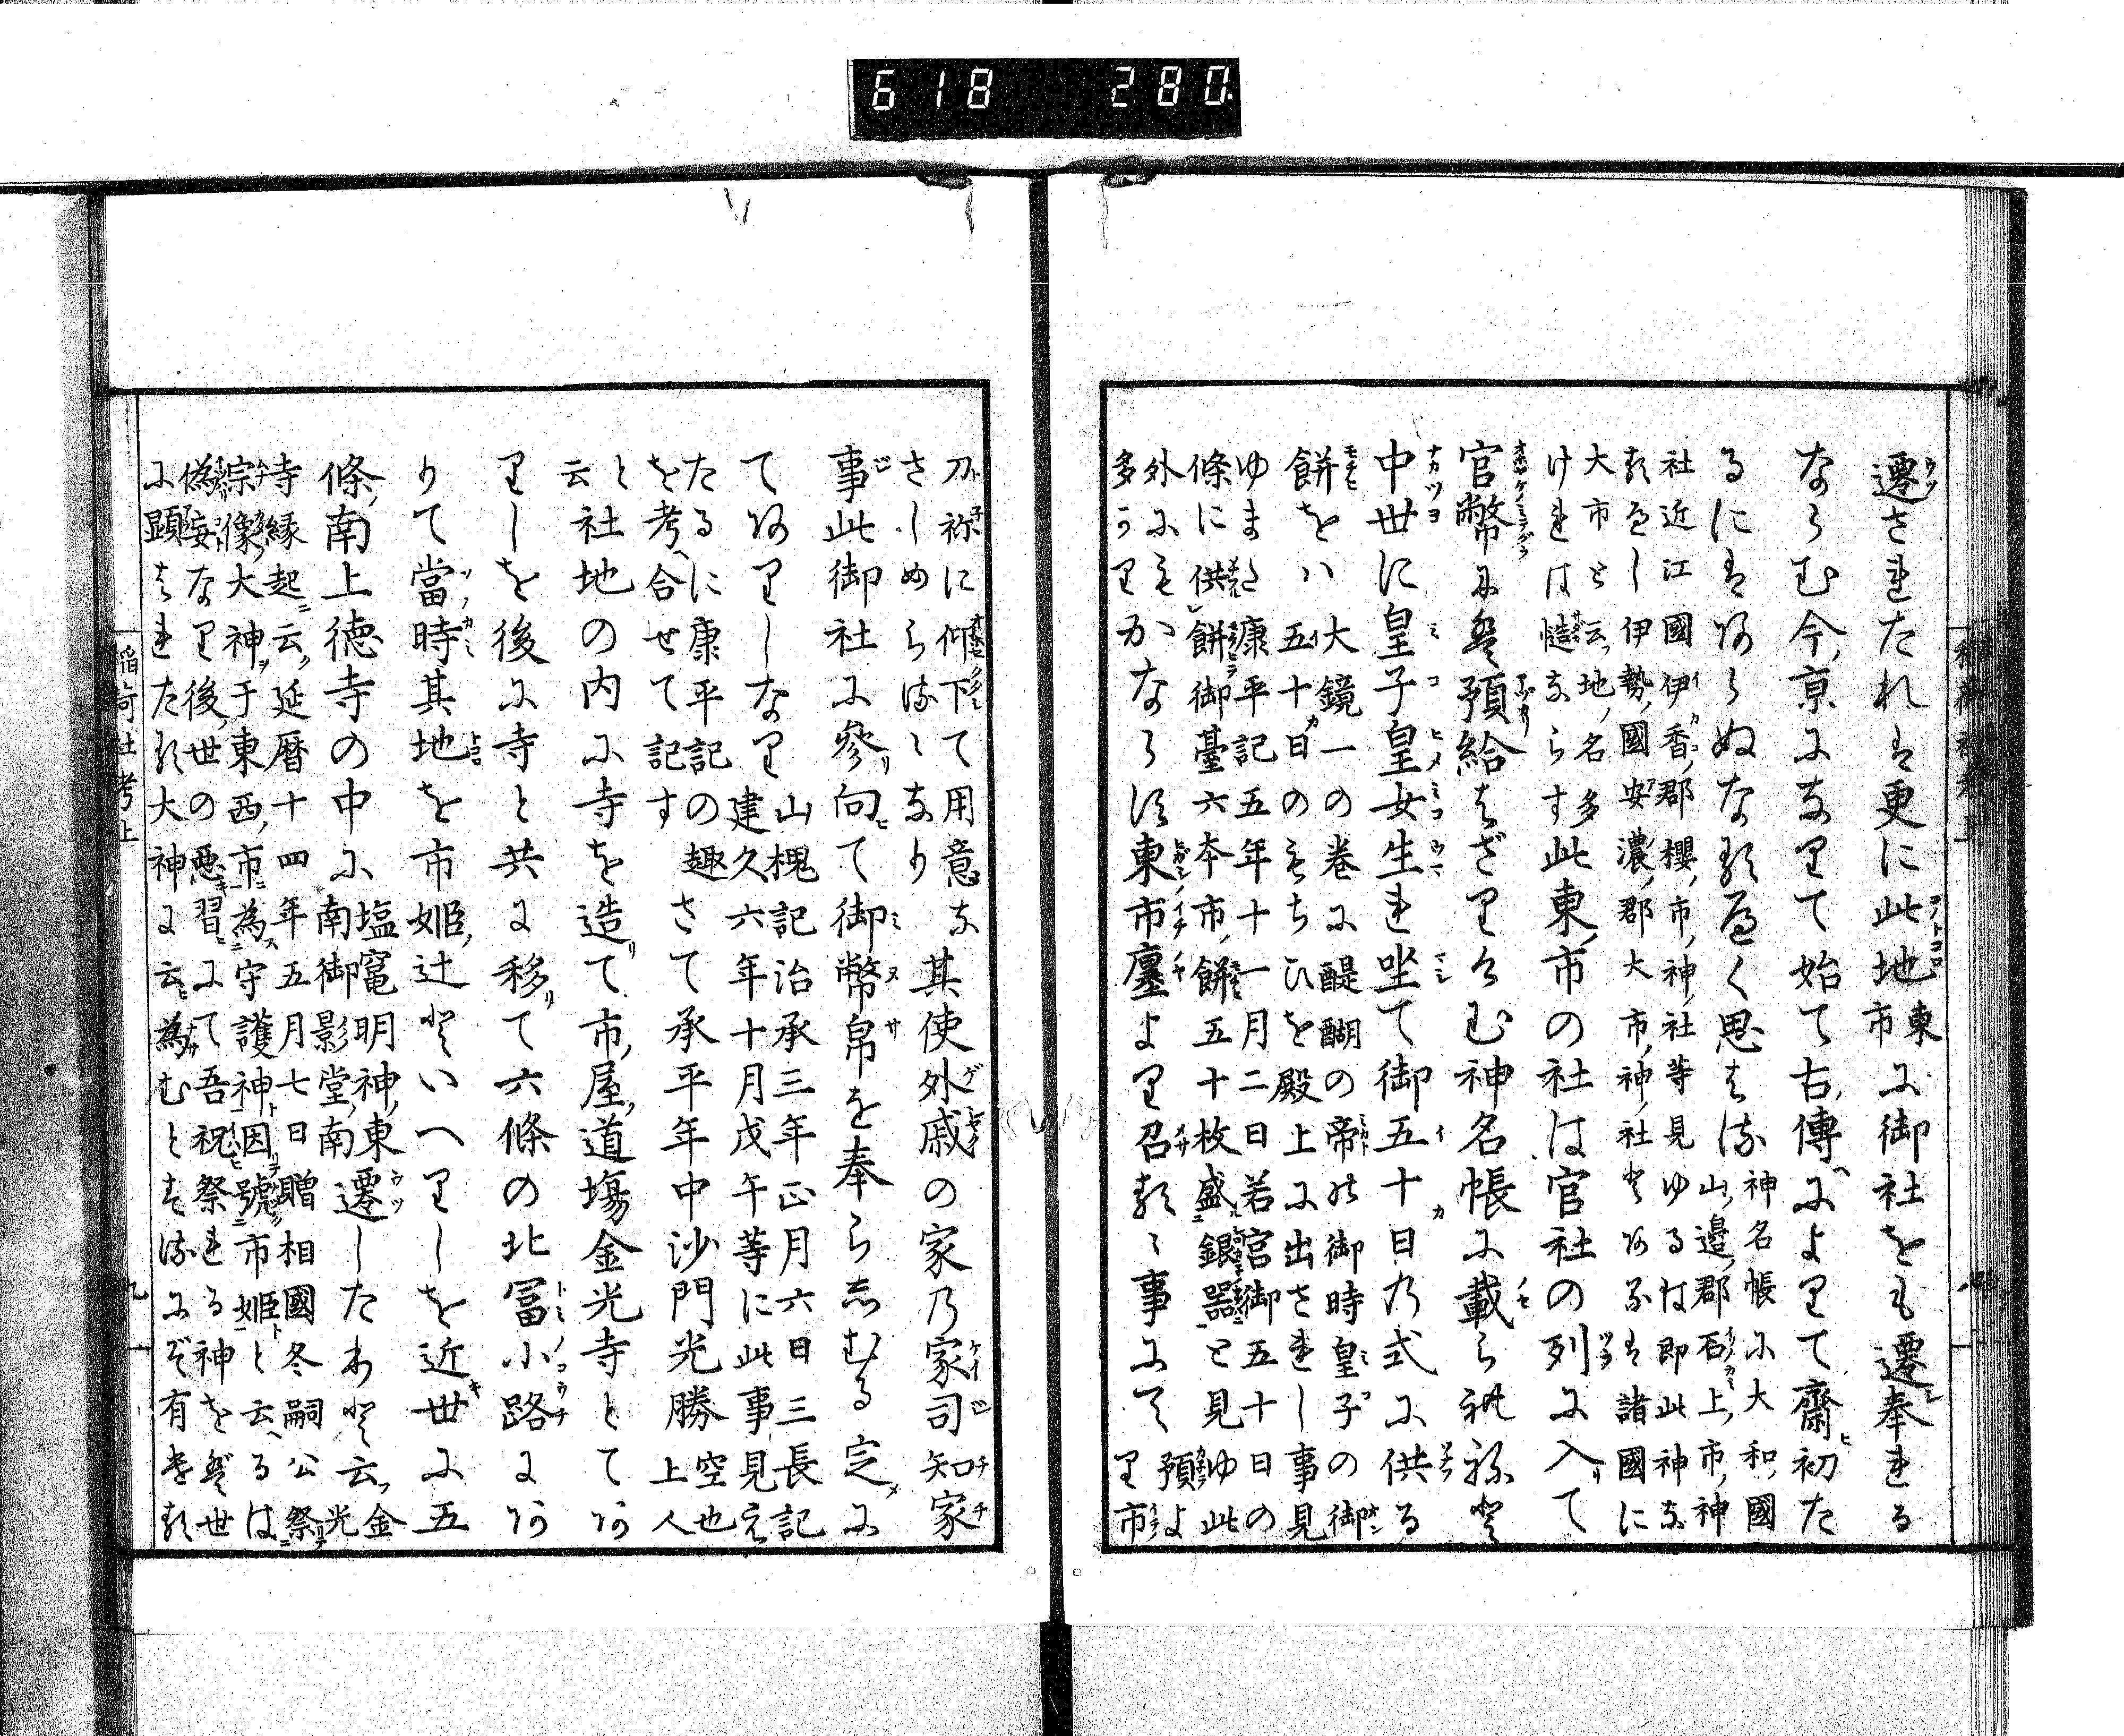 618 280
遷されたれは更に此地東市に御社をも遷奉れる
ならむ今京になりて始て古傳によりて齋初た
るにはあらぬなるへく思はる神名帳に大和國山邊郡石上市神
社近江國伊香郡櫻市神社等見ゆるは即此神な
るへし伊勢國安濃郡大市神社とあるは諸國に
大市と云地名多
けれは慥ならす此東市の社は官社の列に入て
官幣に預給はさりけむ神名帳に載られね
中世に皇子皇女生れ坐て御五十日の式に供る
餅をハ大鏡一の巻に醍醐の帝の御時皇子の御
五十日のもちひを殿上に出されし事見
ゆまた康平記五年十一月二日若宮御五十日の
條に供餅御臺六本市餅五十枚盛銀器と見ゆ此
外にも
多かり東市廛より召るゝ事にて預より市
刀祢に仰下て用意な
さしめらるゝなり其使外戚の家乃家司知家
事此御社に參向て御幣帛を奉らしむる定に
てありしなり山槐記治承三年正月六日三長記
建久六年十月戊午等に此事見え
たるに康平記の趣
を考合せて記すさて承平年中沙門光勝空也
上人
と云社地の内に寺を造て市屋道場金光寺とてあ
りしを後に寺と共に移て六條の北冨小路にあ
りて當時其地を市姫辻といへりしを近世に五
條南上徳寺の中に塩竃明神東
南御影堂南遷したりと云金光
寺縁起云延暦十四年五月七日贈相國冬嗣公祭
宗像大神于東西市為守護神因號市姫と云るは
偽妄なり後世の悪習にて吾祝祭れる神を世
に顯はれたる大神に云為むとするにそ有ける
稲荷社考上
九